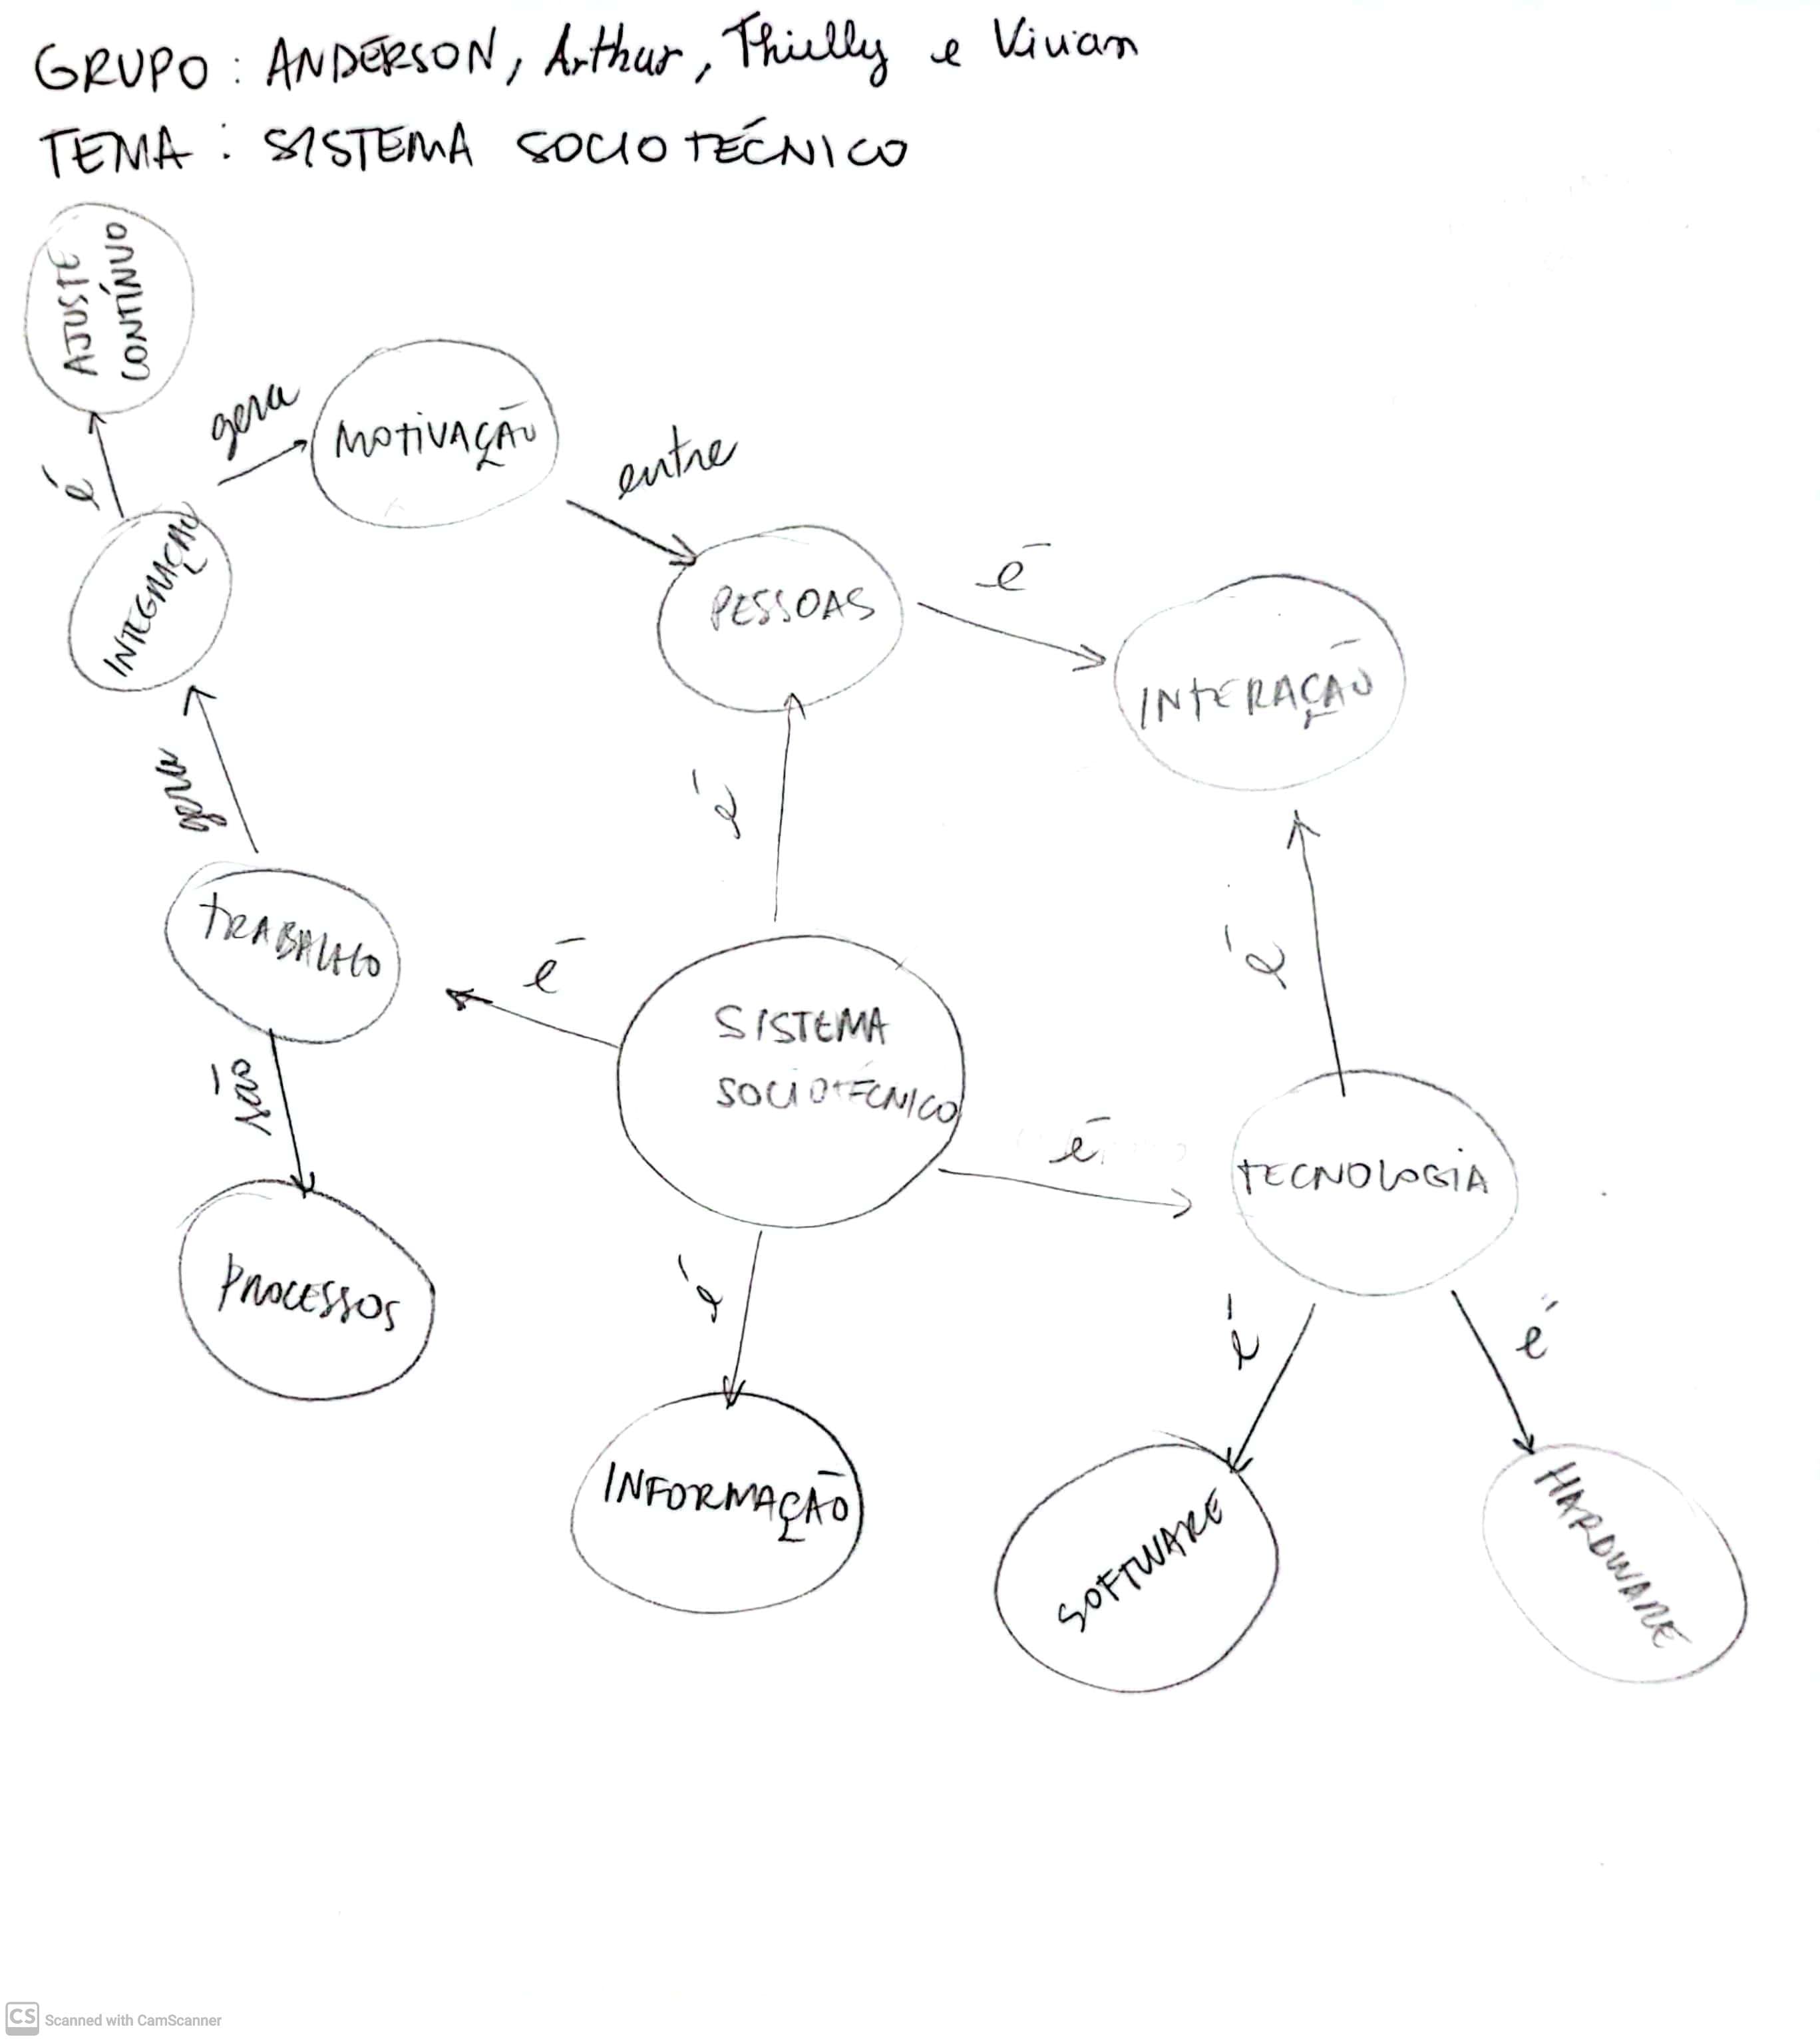 GRUPO : ANDERSON, Arthur, Thielly e Vivian
TEMA : SISTEMA SOCIOTÉCNICO
AJUSTE
CONTÍNUO
é
gera
MOTIVAÇÃO
entre
INTEGRAÇÃO
PESSOAS
é
INTERAÇÃO
gera
é
TRABALHO
é
é
SISTEMA
SOCIOTÉCNICO
é
TECNOLOGIA
PROCESSOS
é
é
é
INFORMAÇÃO
SOFTWARE
HARDWARE
CS Scanned with CamScanner